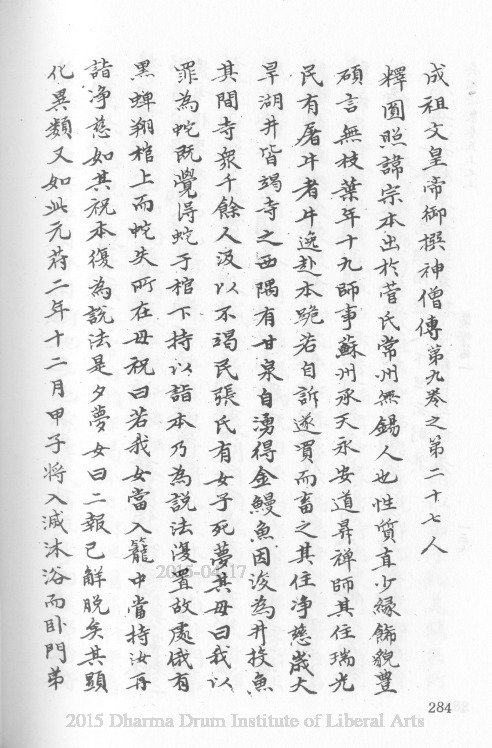 成祖文皇帝御撰神僧傳第九卷之第二十七人
釋圓照諱宗本出於菅氏常州無錫人也性質直少緣飾貌豐
碩言無枝葉年十九師事蘇州承天永安道昇禪師其住瑞光
民有屠牛者牛逸赴本跪若自訴遂買而畜之其住淨慈歲大
旱湖井皆竭寺之西隅有甘泉自湧得金鰻魚因浚為井投魚
其間寺眾千餘人汲以不竭民張氏有女子死夢其母曰我以
罪為蛇既覺得蛇于棺下持以詣本乃為說法復置故處俄有
黑蟬翔棺上而蛇失所在母祝曰若我女當入籠中當持汝再
詣淨慈如其祝本復為說法是夕夢女曰二報已解脫矣其顯
化異類又如此元符二年十二月甲子將入滅沐浴而臥門弟
284
2015-04-17
2015 Dharma Drum Institute of Liberal Arts